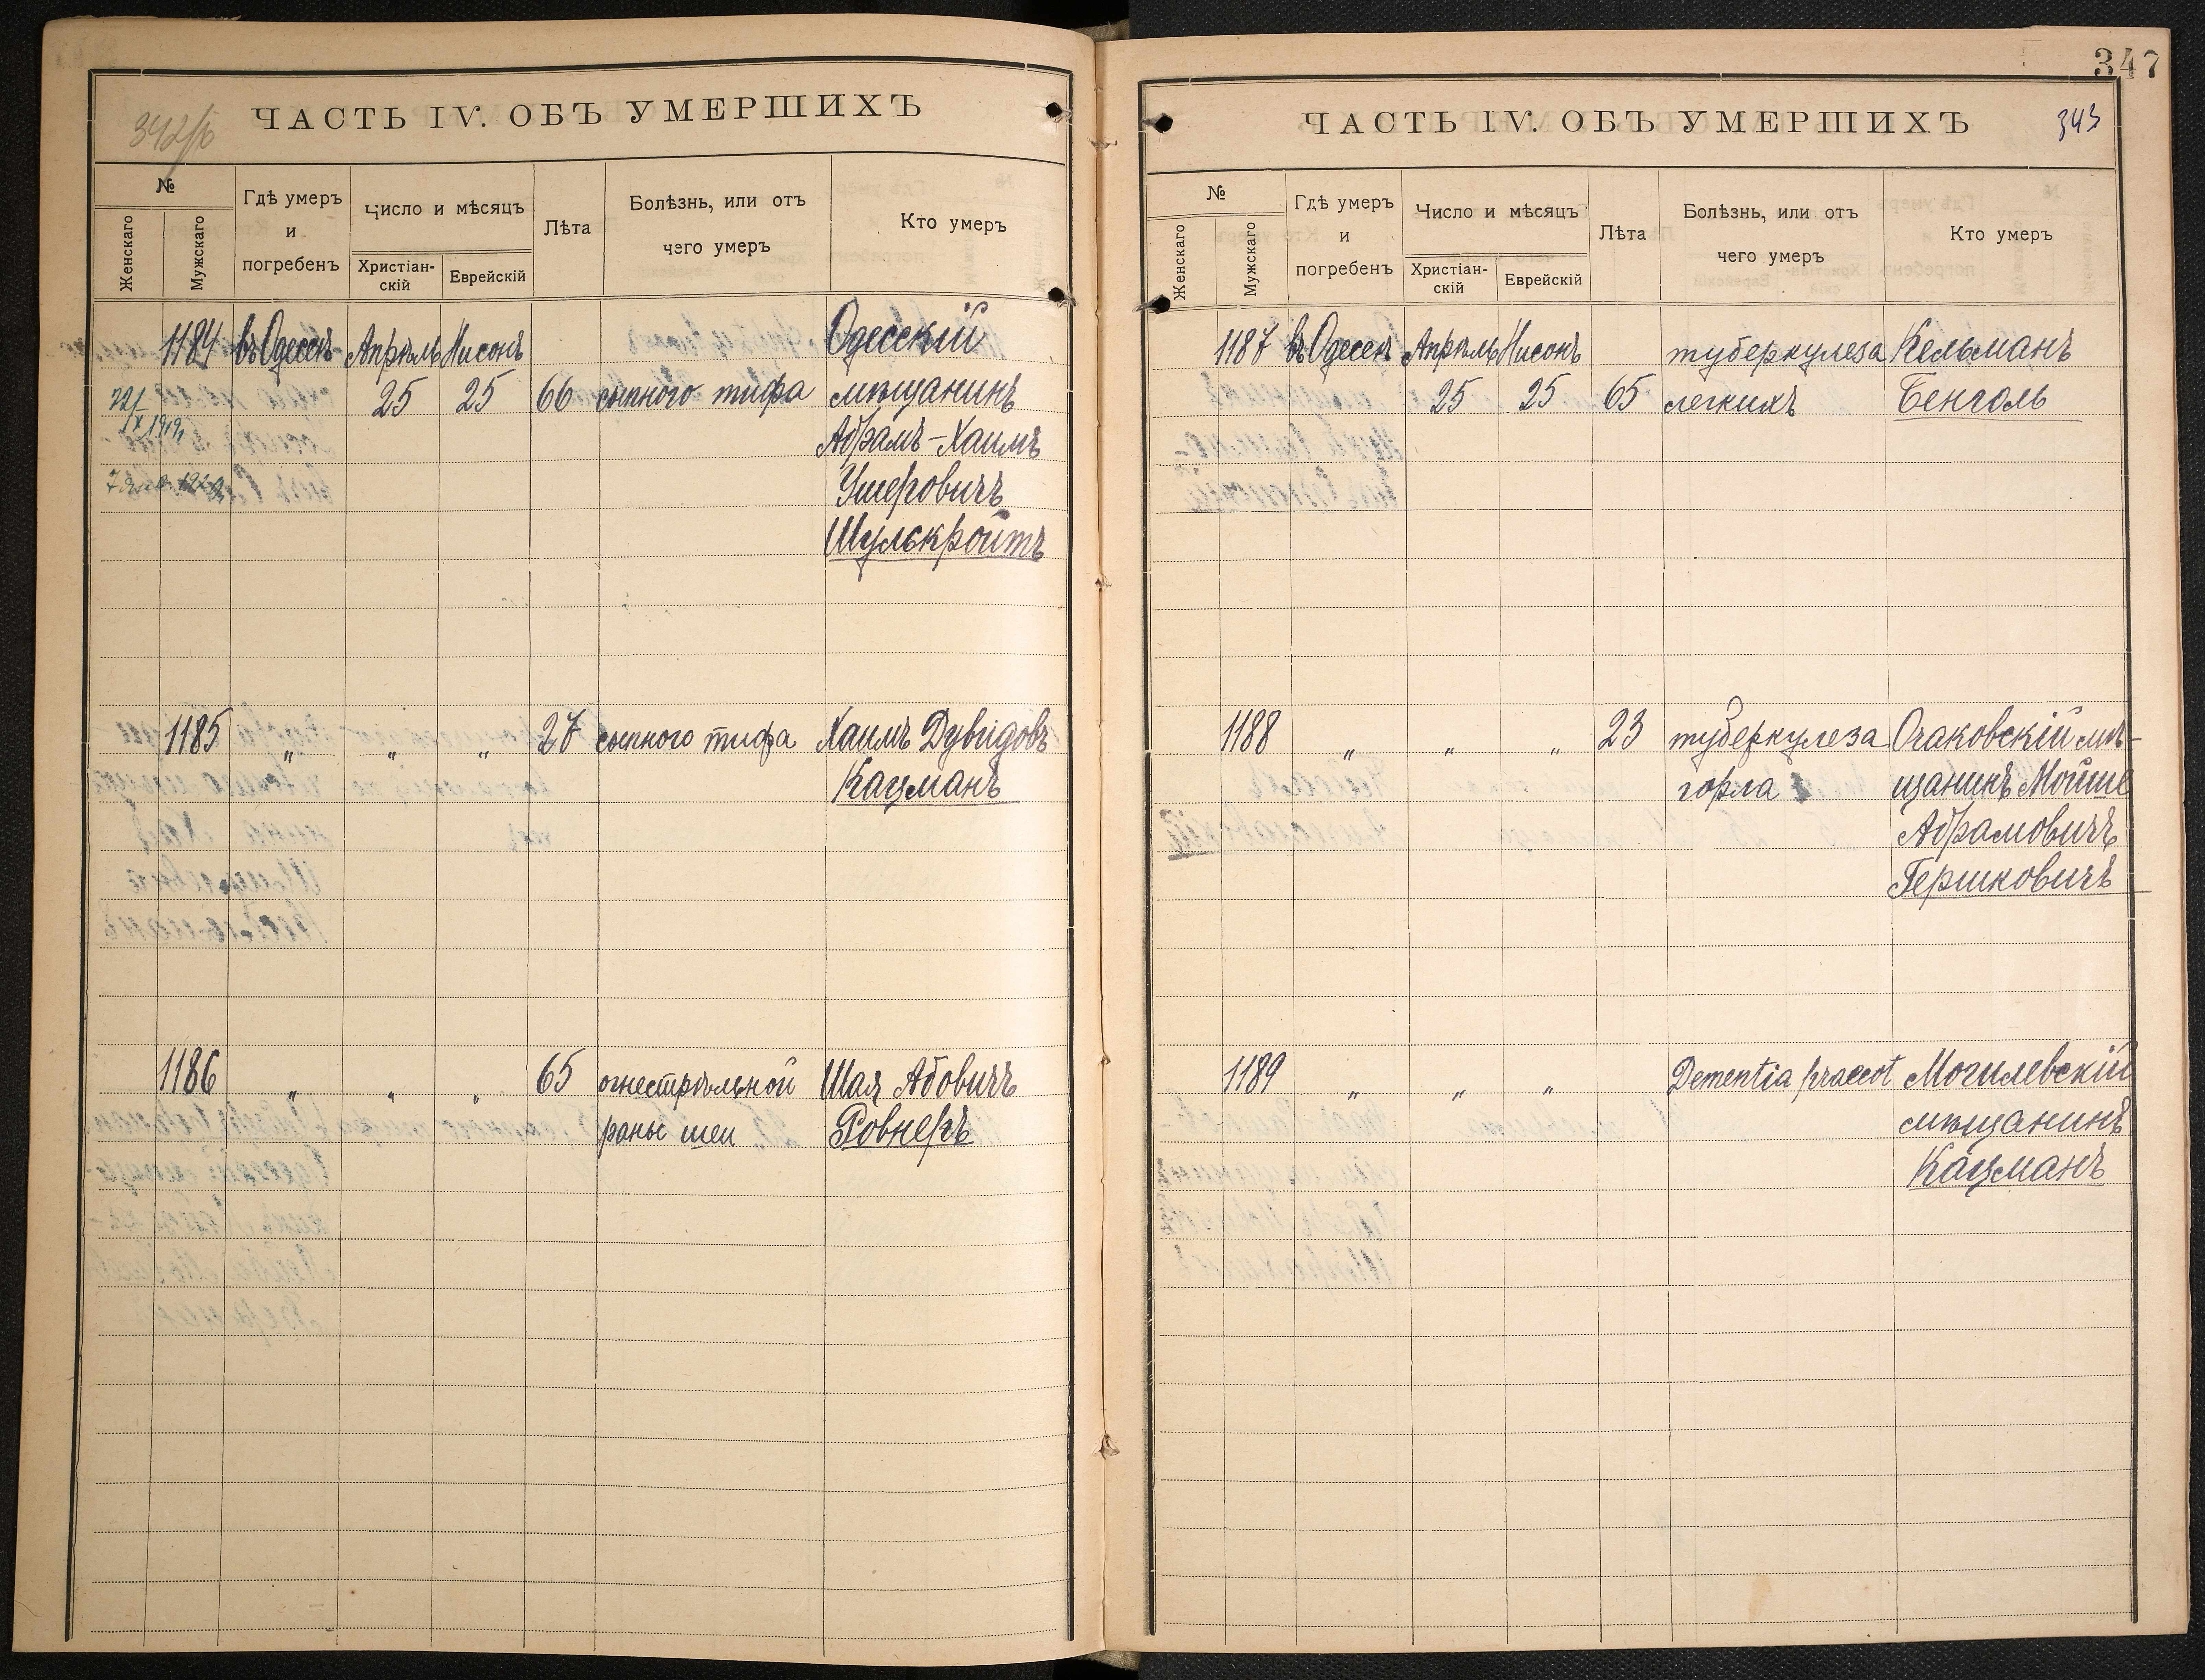 342/б
ЧАСТЬ IV. ОБЪ УМЕРШИХЪ
№
Женскаго
Мужскаго
Гдѣ умеръ
и
погребенъ
Число и мѣсяцъ
Христіан-
скій
Еврейскій
Лѣта
Болѣзнь, или отъ
чего умеръ
Кто умеръ
1184 въ Одессѣ Апрѣль Нисонъ Одесскій
25 25 66 сыпного тифа мѣщанинъ
Абрамъ-Хаимъ
Ушеровичъ
Шулскройтъ
22/IX 1919
1185 " " " 27 сыпного тифа Хаимъ Дувидовъ
Кацманъ
1186 " " " 65 огнестрѣльной Шая Абовичъ
раны шеи Ровнеръ
347
ЧАСТЬ IV. ОБЪ УМЕРШИХЪ 343
№
Женскаго
Мужскаго
Гдѣ умеръ
и
погребенъ
Число и мѣсяцъ
Христіан-
скій
Еврейскій
Лѣта
Болѣзнь, или отъ
чего умеръ
Кто умеръ
1187 въ Одессѣ Апрѣль Нисонъ туберкулеза Кельманъ
25 25 65 легкихъ Бенголь
1188 " " " 23 туберкулеза Очаковскій мѣ-
горла щанинъ Мойше
Абрамовичъ
Гершковичъ
1189 " " " Dementia praecot Могилевскій
мѣщанинъ
Кацманъ